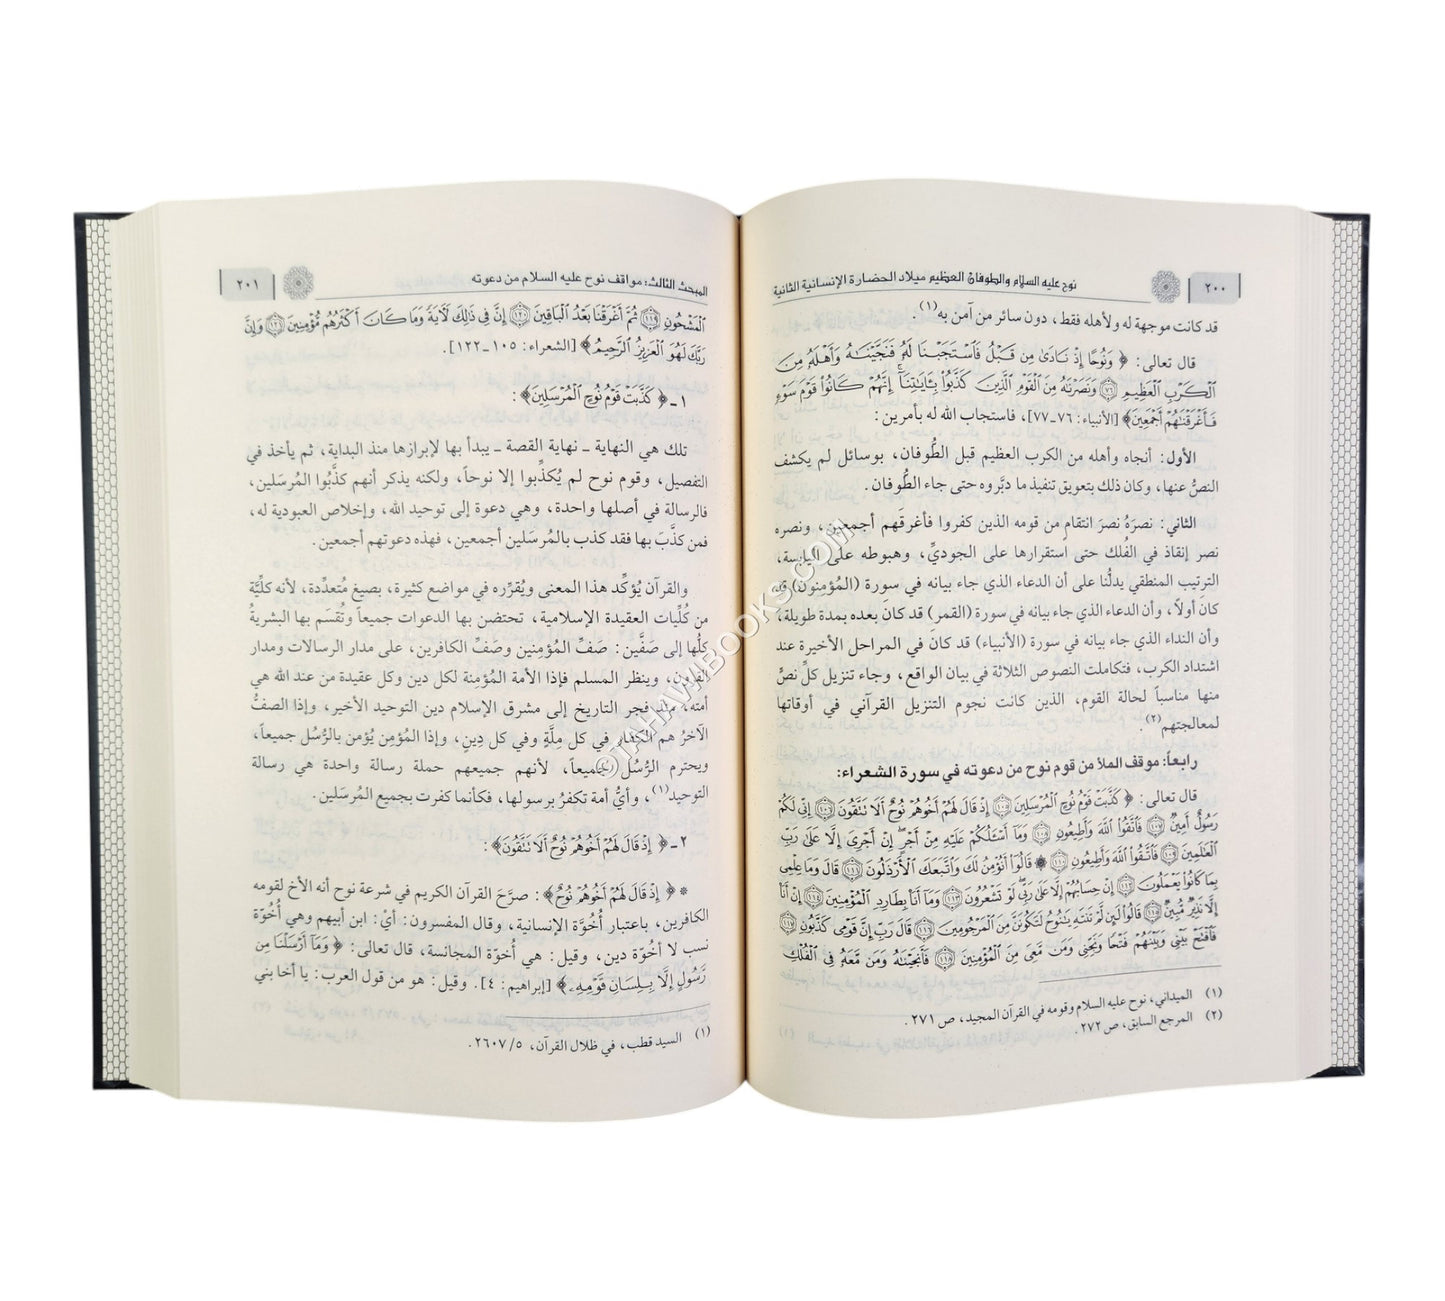 ٢٠٠
نوح عليه السلام والطوفان العظيم ميلاد الحضارة الإنسانية الثانية
قد كانت موجهة له ولأهله فقط، دون سائر من آمن به(١).
قال تعالى: ﴿ وَنُوحًا إِذْ نَادَىٰ مِن قَبْلُ فَاسْتَجَبْنَا لَهُ فَنَجَّيْنَاهُ وَأَهْلَهُ مِنَ
الْكَرْبِ الْعَظِيمِ ٧٦ وَنَصَرْنَاهُ مِنَ الْقَوْمِ الَّذِينَ كَذَّبُوا بِآيَاتِنَا إِنَّهُمْ كَانُوا قَوْمَ سَوْءٍ
فَأَغْرَقْنَاهُمْ أَجْمَعِينَ﴾ [الأنبياء: ٧٦-٧٧]، فاستجاب الله له بأمرين:
الأول: أنجاه وأهله من الكرب العظيم قبل الطُّوفان، بوسائل لم يكشف
النصُّ عنها، وكان ذلك بتعويق تنفيذ ما دبَّروه حتى جاء الطُّوفان.
الثاني: نصرَهُ نصرَ انتقام من قومه الذين كفروا فأغرقَهم أجمعين، ونصره
نصر إنقاذ في الفُلك حتى استقرارها على الجوديِّ، وهبوطه على اليابسة،
الترتيب المنطقي يدلُّنا على أن الدعاء الذي جاء بيانه في سورة (المُؤمنون) قد
كان أولاً، وأن الدعاء الذي جاء بيانه في سورة (القمر) قد كانَ بعده بمدة طويلة،
وأن النداء الذي جاء بيانه في سورة (الأنبياء) قد كانَ في المراحل الأخيرة عند
اشتداد الكرب، فتكاملت النصوص الثلاثة في بيان الواقع، وجاء تنزيل كلِّ نصٍّ
منها مناسباً لحالة القوم، الذين كانت نجوم التنزيل القرآني في أوقاتها
لمعالجتهم(٢).
رابعاً: موقف الملأ من قوم نوح من دعوته في سورة الشعراء:
قال تعالى: ﴿ كَذَّبَتْ قَوْمُ نُوحٍ الْمُرْسَلِينَ ١٠٥ إِذْ قَالَ لَهُمْ أَخُوهُمْ نُوحٌ أَلَا تَتَّقُونَ ١٠٦ إِنِّي لَكُمْ
رَسُولٌ أَمِينٌ ١٠٧ فَاتَّقُوا اللَّهَ وَأَطِيعُونِ ١٠٨ وَمَا أَسْأَلُكُمْ عَلَيْهِ مِنْ أَجْرٍ إِنْ أَجْرِيَ إِلَّا عَلَىٰ رَبِّ
الْعَالَمِينَ ١٠٩ فَاتَّقُوا اللَّهَ وَأَطِيعُونِ ١١٠ ۞ قَالُوا أَنُؤْمِنُ لَكَ وَاتَّبَعَكَ الْأَرْذَلُونَ ١١١ قَالَ وَمَا عِلْمِي
بِمَا كَانُوا يَعْمَلُونَ ١١٢ إِنْ حِسَابُهُمْ إِلَّا عَلَىٰ رَبِّي لَوْ تَشْعُرُونَ ١١٣ وَمَا أَنَا بِطَارِدِ الْمُؤْمِنِينَ ١١٤ إِنْ أَنَا
إِلَّا نَذِيرٌ مُّبِينٌ ١١٥ قَالُوا لَئِن لَّمْ تَنتَهِ يَا نُوحُ لَتَكُونَنَّ مِنَ الْمَرْجُومِينَ ١١٦ قَالَ رَبِّ إِنَّ قَوْمِي كَذَّبُونِ ١١٧
فَافْتَحْ بَيْنِي وَبَيْنَهُمْ فَتْحًا وَنَجِّنِي وَمَن مَّعِيَ مِنَ الْمُؤْمِنِينَ ١١٨ فَأَنجَيْنَاهُ وَمَن مَّعَهُ فِي الْفُلْكِ
(١) الميداني، نوح عليه السلام وقومه في القرآن المجيد، ص ٢٧١.
(٢) المرجع السابق، ص ٢٧٢.
المبحث الثالث: مواقف نوح عليه السلام من دعوته
٢٠١
الْمَشْحُونِ ١١٩ ثُمَّ أَغْرَقْنَا بَعْدُ الْبَاقِينَ ١٢٠ إِنَّ فِي ذَٰلِكَ لَآيَةً وَمَا كَانَ أَكْثَرُهُم مُّؤْمِنِينَ ١٢١ وَإِنَّ
رَبَّكَ لَهُوَ الْعَزِيزُ الرَّحِيمُ﴾ [الشعراء: ١٠٥-١٢٢].
١ـ ﴿ كَذَّبَتْ قَوْمُ نُوحٍ الْمُرْسَلِينَ﴾:
تلك هي النهاية ـ نهاية القصة ـ يبدأ بها لإبرازها منذ البداية، ثم يأخذ في
التفصيل، وقوم نوح لم يُكذِّبوا إلا نوحاً، ولكنه يذكر أنهم كذَّبوا المُرسَلين،
فالرسالة في أصلها واحدة، وهي دعوة إلى توحيد الله، وإخلاص العبودية له،
فمن كذَّبَ بها فقد كذب بالمُرسَلين أجمعين، فهذه دعوتهم أجمعين.
والقرآن يُؤكِّد هذا المعنى ويُقرِّره في مواضع كثيرة، بصيغ مُتعدِّدة، لأنه كلِّيَّة
من كُلِّيات العقيدة الإسلامية، تحتضن بها الدعوات جميعاً وتُقسَم بها البشريةُ
كلُّها إلى صَفَّين: صَفِّ المُؤمِنين وصَفِّ الكافرين، على مدار الرسالات ومدار
القرون، وينظر المسلم فإذا الأمة المُؤمِنة لكل دين وكل عقيدة من عند الله هي
أمته، منذ فجر التاريخ إلى مشرق الإسلام دين التوحيد الأخير، وإذا الصفُّ
الآخرُ هم الكفار في كل مِلَّةٍ وفي كل دِينٍ، وإذا المُؤمِن يُؤمن بالرُّسُل جميعاً،
ويحترم الرُّسُل جميعاً، لأنهم جميعهم حملة رسالة واحدة هي رسالة
التوحيد(١)، وأيُّ أمة تكفرُ برسولها، فكأنما كفرت بجميع المرسَلين.
٢ـ ﴿ إِذْ قَالَ لَهُمْ أَخُوهُمْ نُوحٌ أَلَا تَتَّقُونَ﴾:
* ﴿ إِذْ قَالَ لَهُمْ أَخُوهُمْ نُوحٌ﴾: صرَّحَ القرآن الكريم في شرعة نوح أنه الأخ لقومه
الكافرين، باعتبار أُخُوَّة الإنسانية، وقال المفسرون: أيْ: ابن أبيهم وهي أُخُوَّة
نسب لا أُخُوّة دين، وقيل: هي أُخوّة المجانسة، قال تعالى: ﴿ وَمَا أَرْسَلْنَا مِن
رَّسُولٍ إِلَّا بِلِسَانِ قَوْمِهِ﴾ [إبراهيم: ٤]. وقيل: هو من قول العرب: يا أخا بني
(١) السيد قطب، في ظلال القرآن، ٢٦٠٧/٥.